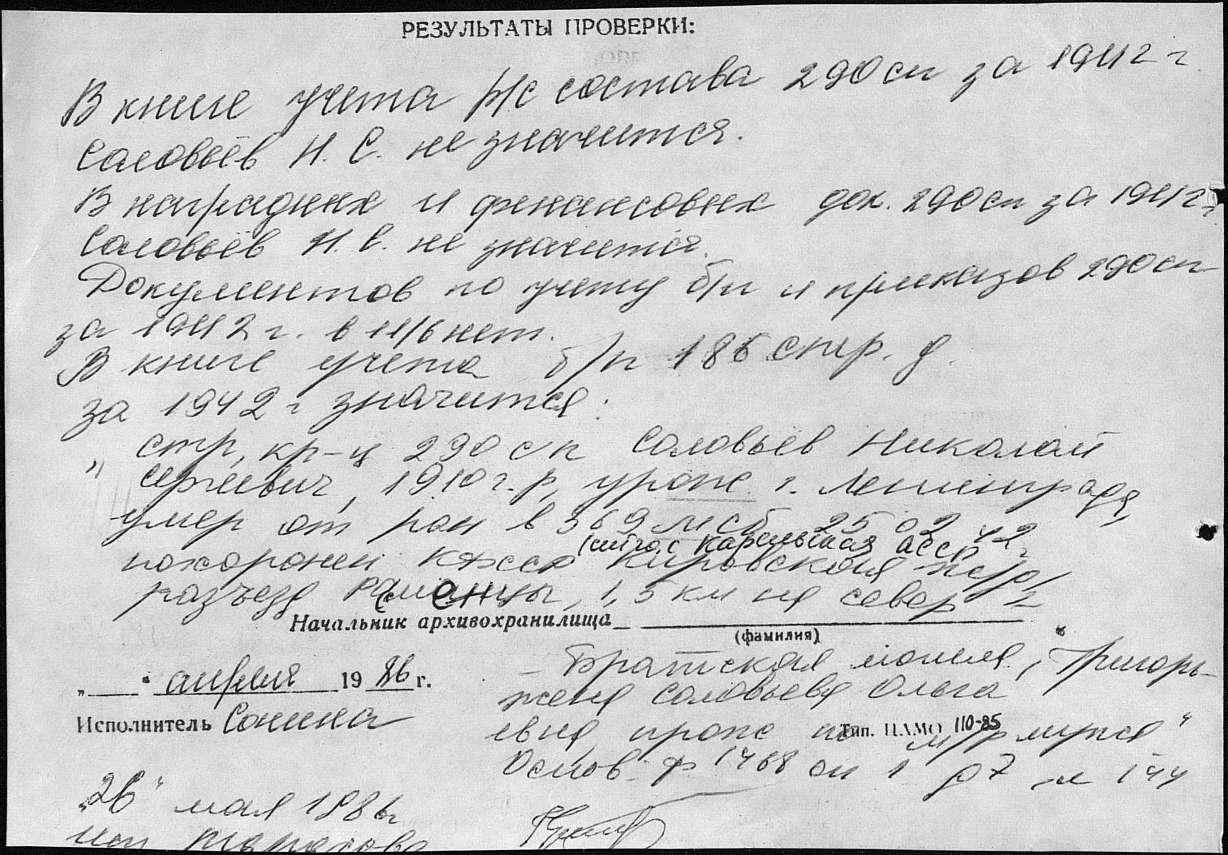 РЕЗУЛЬТАТЫ ПРОВЕРКИ:
В книге учета р/с состава 290 сп за 1942 г
Соловьёв Н. С. не значится.
В наградных и финансовых док. 290 сп за 1942 г.
Соловьёв Н. С. не значится.
Документов по учету б/п и приказов 290 сп
за 1942 г. в нет.
В книге учета б/п 186 стр. д.
за 1942 г значится:
" стр, кр-ц 290 с/п Соловьев Николай
Сергеевич, 1910 г.р, урож. г. Ленинграда,
умер от ран в 369 мсб 25 02 42 г
(сейчас Карельская АССР
похоронен КФССР Кировская ж/д
разъезд 1,5 км на север
Начальник архивохранилища
(фамилия)
- Братская могила,
жена Соловьева Ольга Григорь-
евна прож по м/р мужа"
Основ. ф 1468 оп 1 д 7 л 144
„ " апреля 1986 г.
Исполнитель Сонина
Тип. ЦАМО 110-85
„26" мая 1986г
исп Тарасова